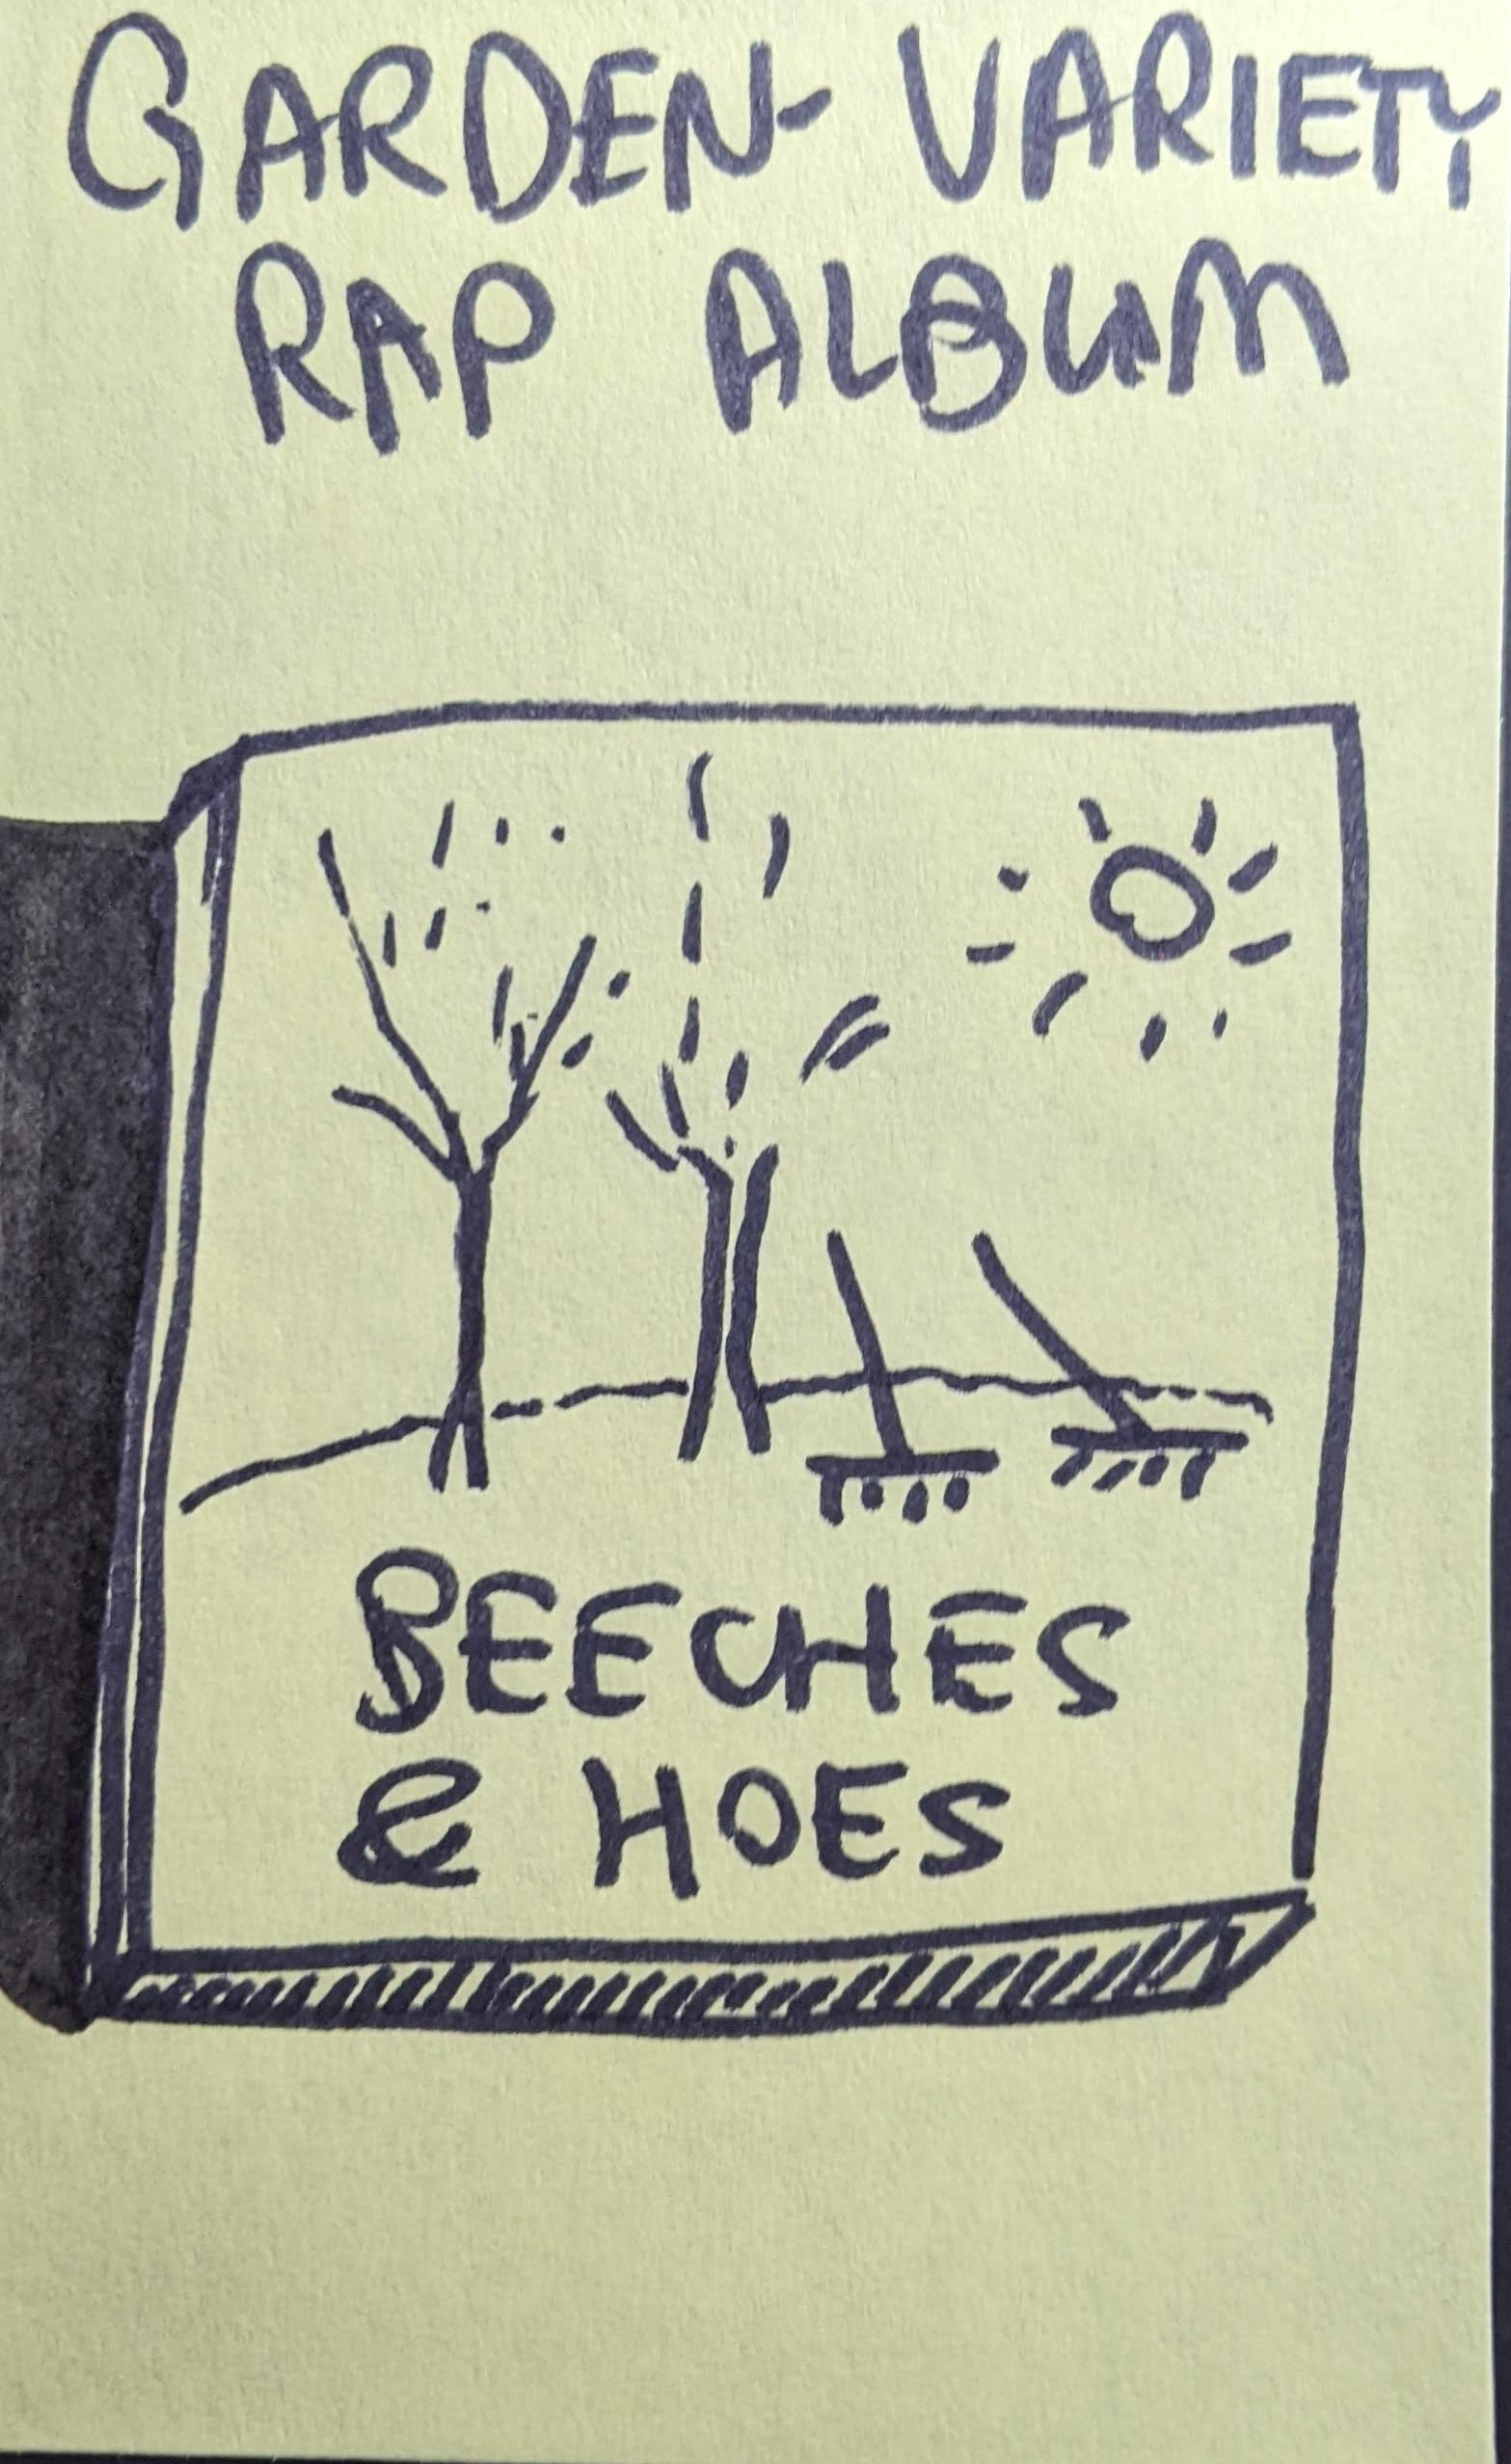 GARDEN-VARIETY
RAP ALBUM
BEECHES
& HOES